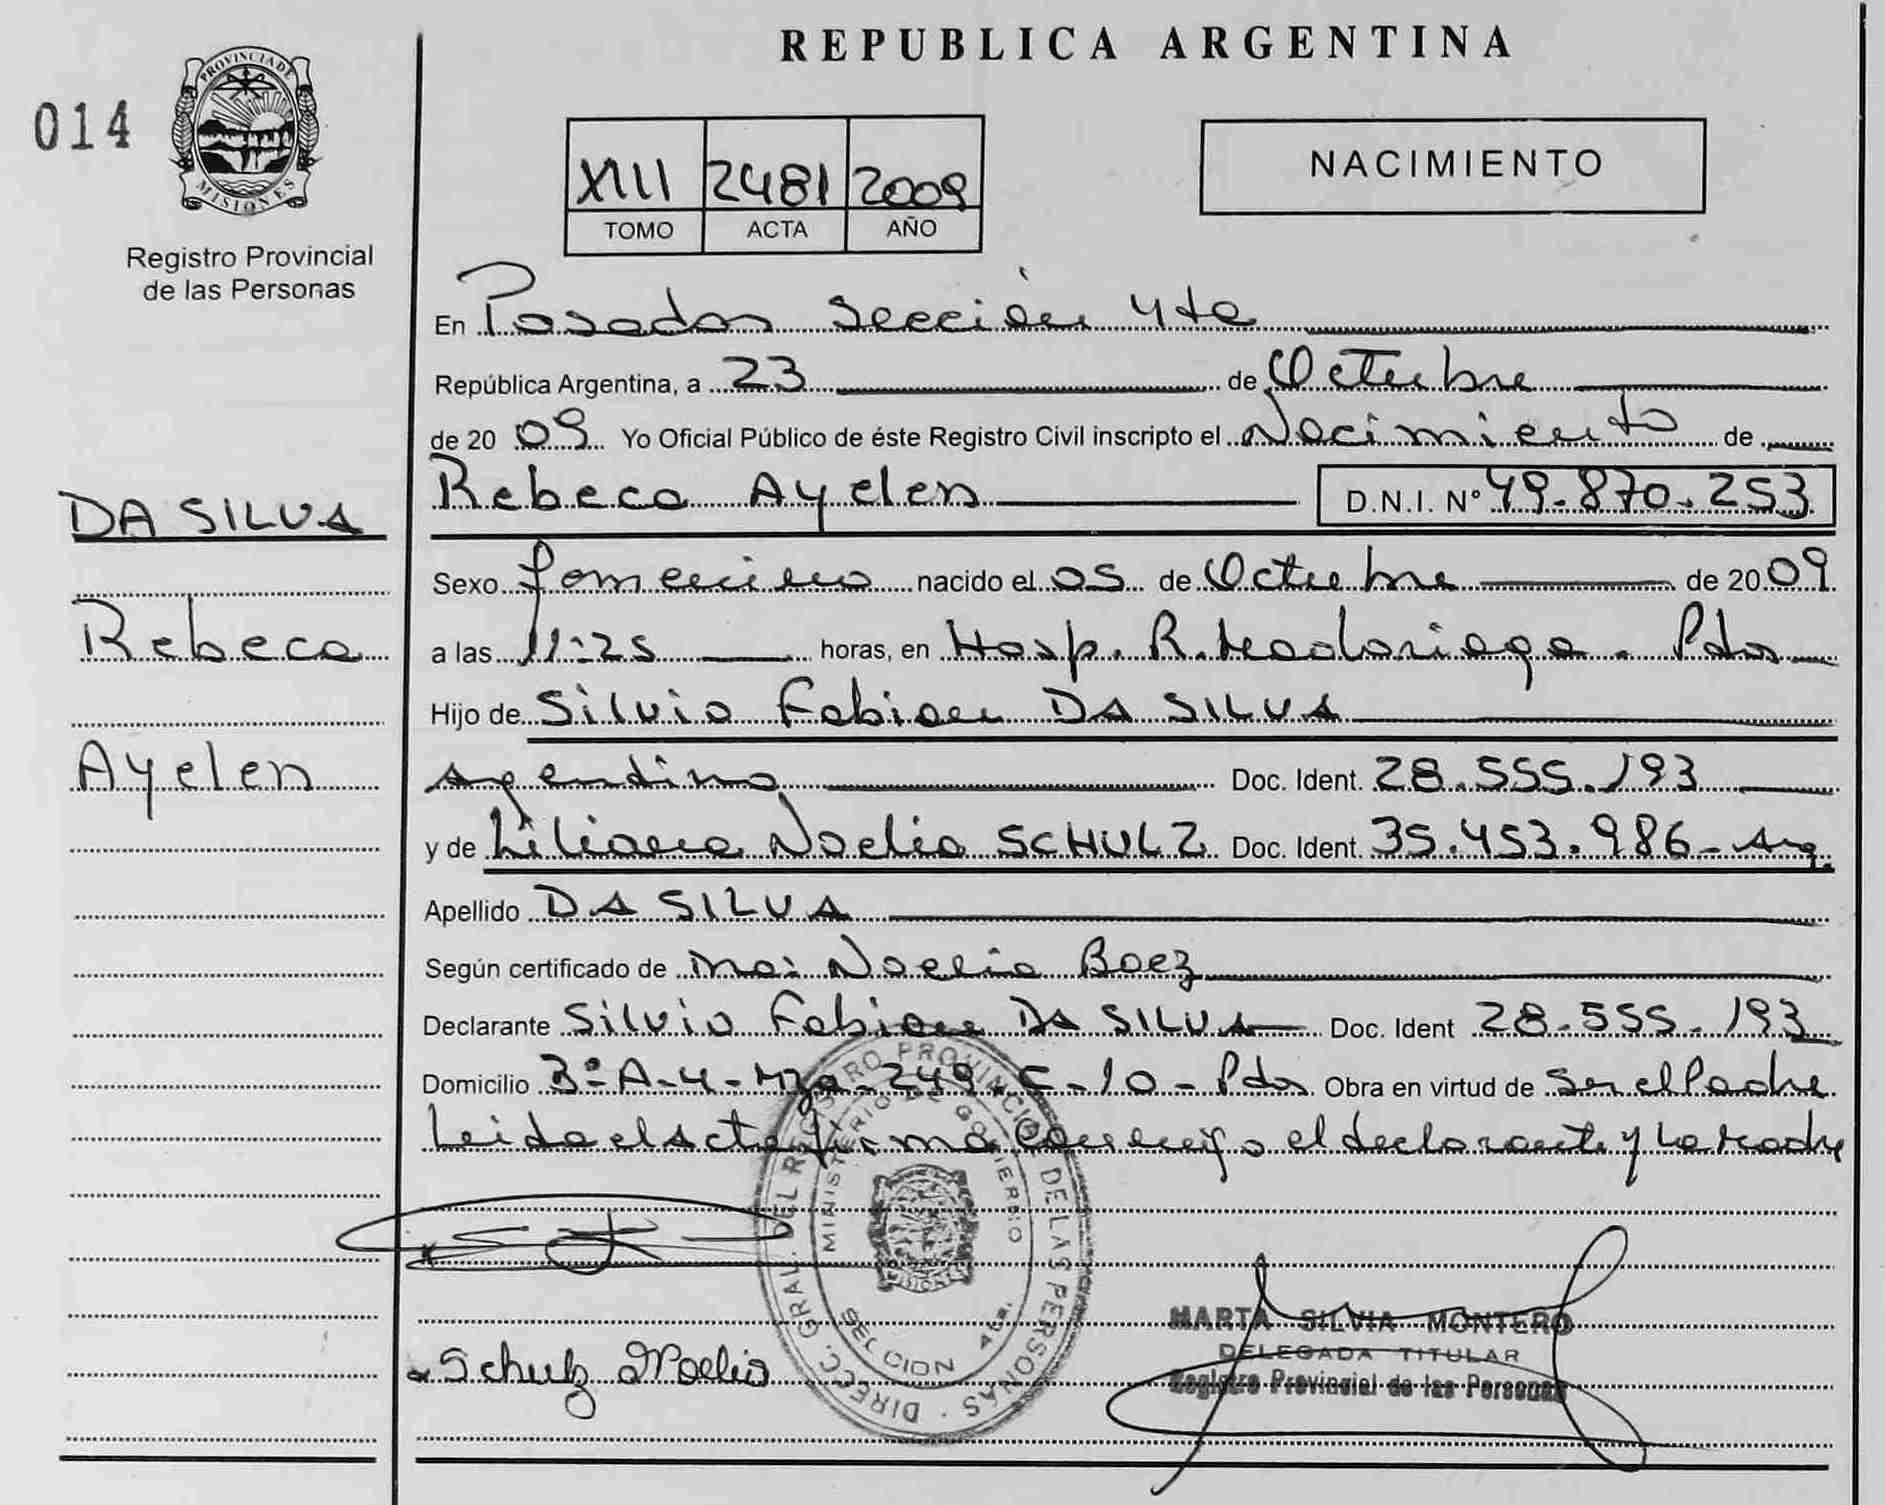 REPUBLICA ARGENTINA
014
PROVINCIA DE
MISIONES
Registro Provincial
de las Personas
XIII 2481 2009
TOMO ACTA AÑO
NACIMIENTO
En Posadas Sección 4ta
República Argentina, a 23 de Octubre
de 2009 Yo Oficial Público de éste Registro Civil inscripto el Nacimiento de
Rebeca Ayelen D.N.I. Nº 49.870.253
DA SILVA
Rebeca
Ayelen
Sexo femenino nacido el 05 de Octubre de 2009
a las 11:25 horas, en Hosp. R. Madariaga. Pdas
Hijo de Silvio Fabian DA SILVA
Argentino Doc. Ident. 28.555.193
y de Liliana Noelia SCHULZ Doc. Ident. 35.453.986 - Arg.
Apellido DA SILVA
Según certificado de Ma: Noelia Baez
Declarante Silvio Fabian DA SILVA Doc. Ident 28.555.193
Domicilio 3º-A-4-Mza-249-C-10-Pdas Obra en virtud de Ser el Padre
Leida el Acta firma conmigo el declarante y La Madre
DIREC. GRAL. DEL REGISTRO PROVINCIAL DE LAS PERSONAS
MINISTERIO DE GOBIERNO
MISIONES
SECCION 4ta.
MARTA SILVIA MONTERO
DELEGADA TITULAR
Registro Provincial de las Personas
Schulz Noelia